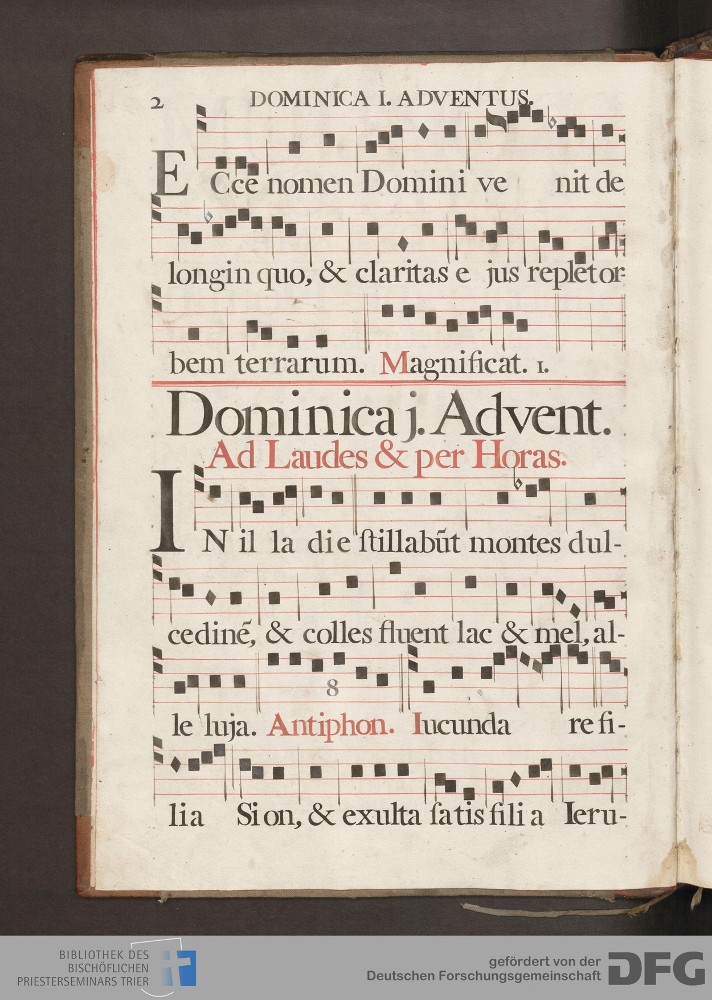 2 DOMINICA I. ADVENTUS.
ECce nomen Domini ve nit de
longin quo, & claritas e jus replet or
bem terrarum. Magnificat. 1.
Dominica j. Advent.
Ad Laudes & per Horas.
IN il la die ſtillabūt montes dul-
cedinē, & colles fluent lac & mel, al-
8
le luja. Antiphon. Iucunda re fi-
lia Si on, & exulta ſatis fili a Ieru-
BIBLIOTHEK DES
BISCHÖFLICHEN
PRIESTERSEMINARS TRIER
gefördert von der
Deutschen Forschungsgemeinschaft
DFG